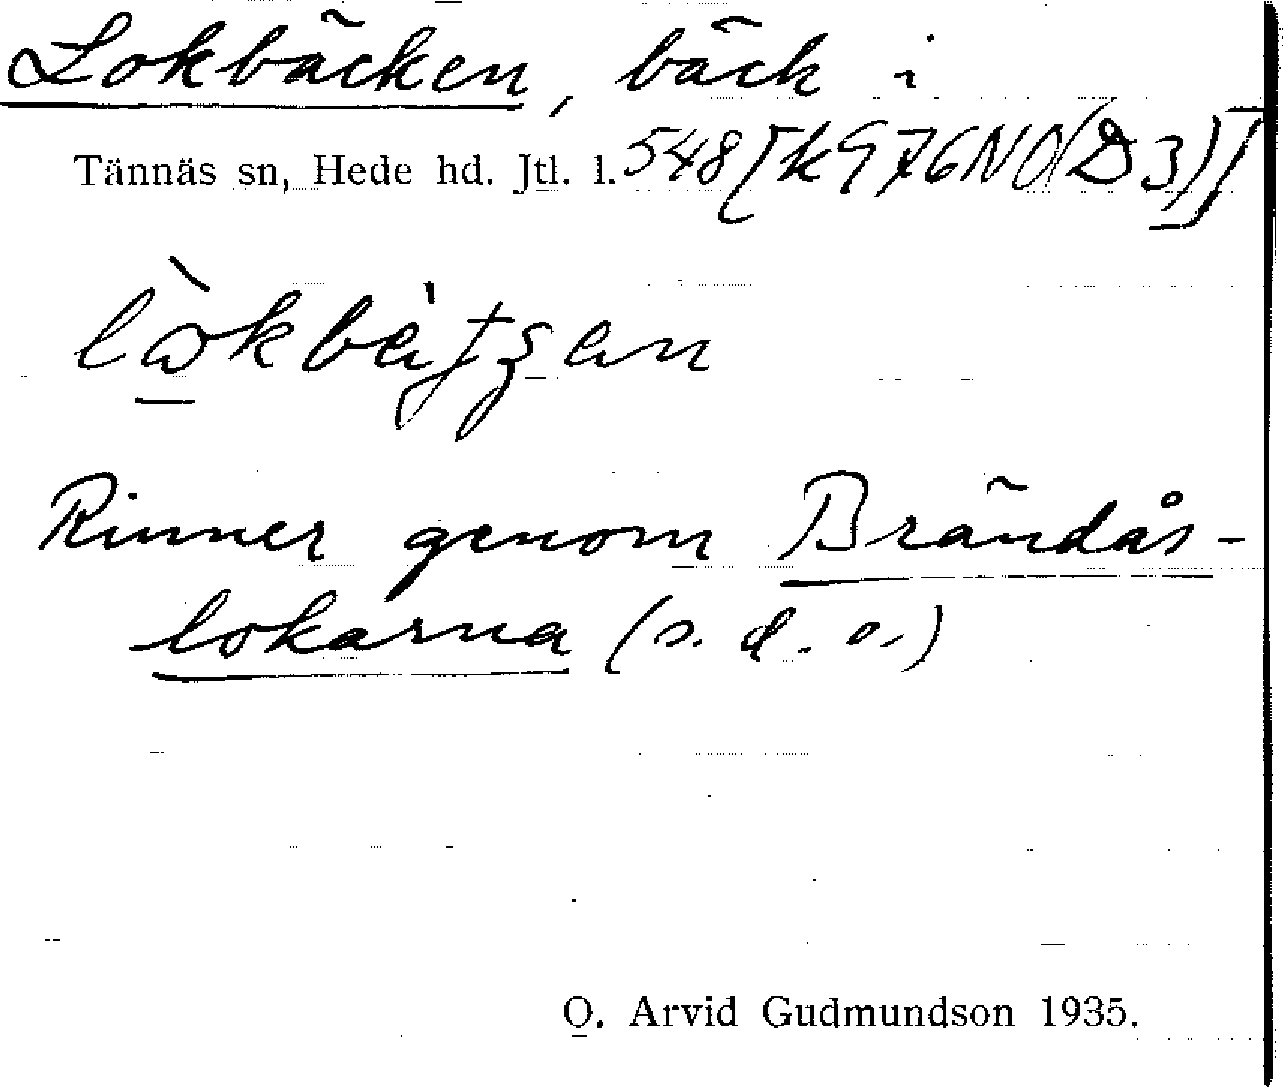 Lokbäcken, bäck i
Tännäs sn, Hede hd. Jtl. l. 548 [k976NO(D3)]
Rinner genom Brändås-
lokarna (s. d. o.)
O. Arvid Gudmundson 1935.